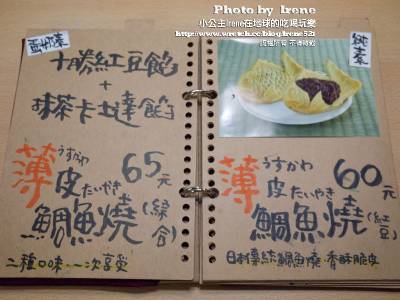 Photo by Irene
小公主Irene在地球的吃喝玩樂
http://www.wretch.cc/blog/irene521
十勝紅豆餡
+
抹茶卡士達餡
薄皮
うすかわ
たいやき
65元
鯛魚燒
(綜合)
二種口味一次享受
純素
薄皮
うすかわ
たいやき
60元
鯛魚燒
(紅豆)
日本傳統鯛魚燒.香酥脆皮